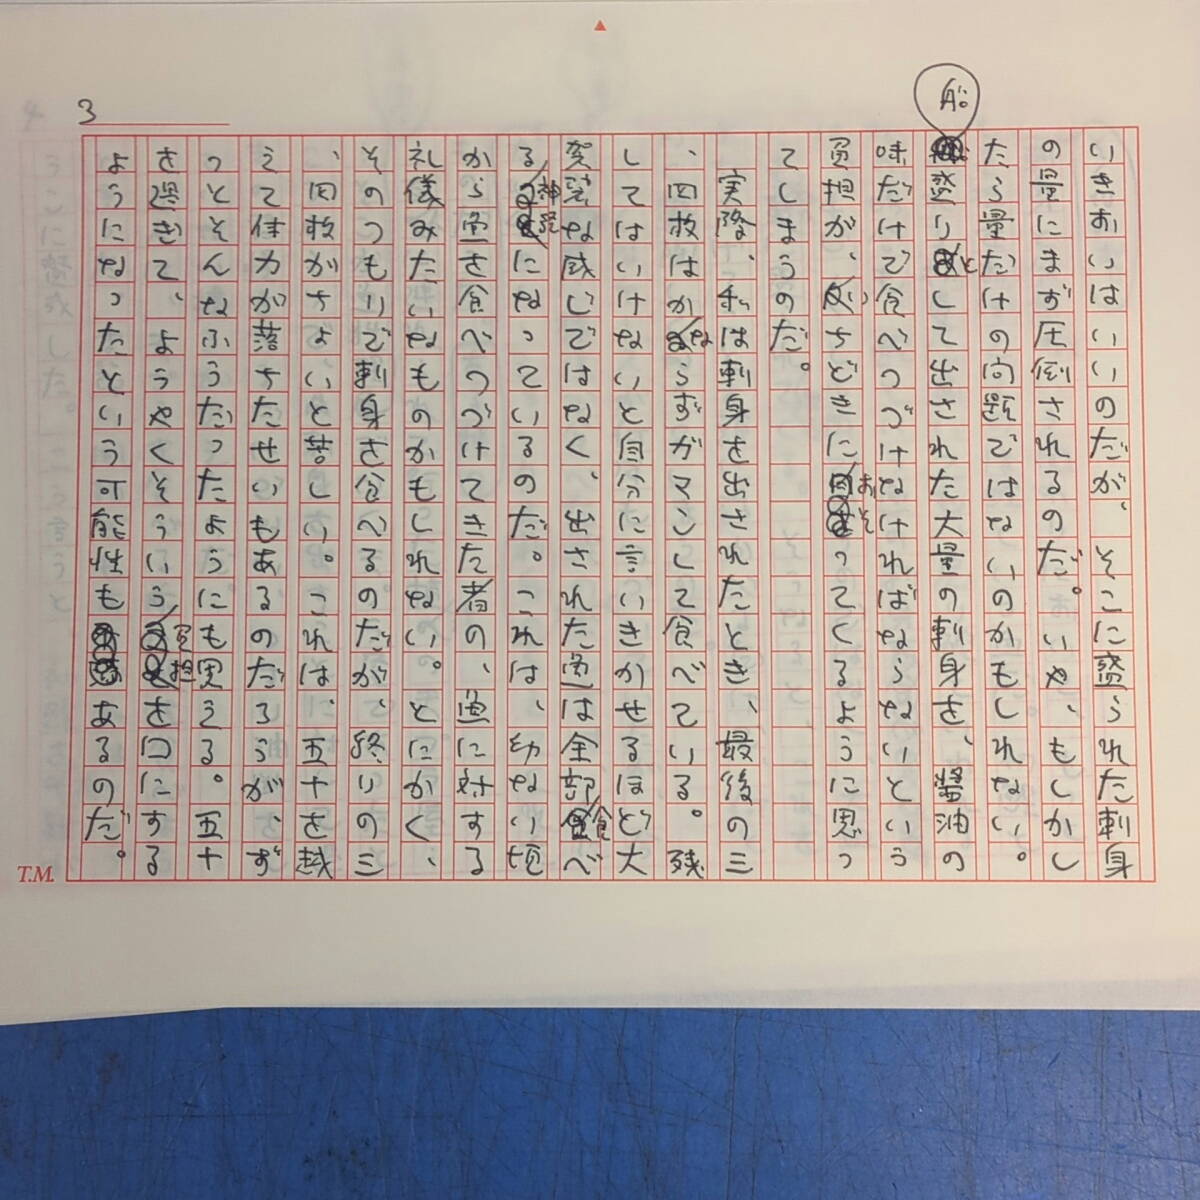 3
船
いきおいはいいのだが、そこに盛られた刺身
の量にまず圧倒されるのだ。いや、もしかし
たら量だけの問題ではないのかもしれない。
盛りとして出された大量の刺身を、醤油の
味だけで食べつづけなければならないという
負担が、いちどきにおそってくるように思っ
てしまうのだ。
実際、私は刺身を出されたとき、最後の三
、四枚はかならずガマンして食べている。残
してはいけないと自分に言いきかせるほど大
袈裟な感じではなく、出された魚は全部食べ
る神経になっているのだ。これは、幼ない頃
から魚を食べつづけてきた者の、魚に対する
礼儀みたいなものかもしれない。とにかく、
そのつもりで刺身を食べるのだが、終りの三
、四枚がちょいと苦しい。これは、五十を越
えて体力が落ちたせいもあるのだろうが、ず
っとそんなふうだったようにも思える。五十
を過ぎて、ようやくそういう負担を口にする
ようになったという可能性もあるのだ。
T.M.